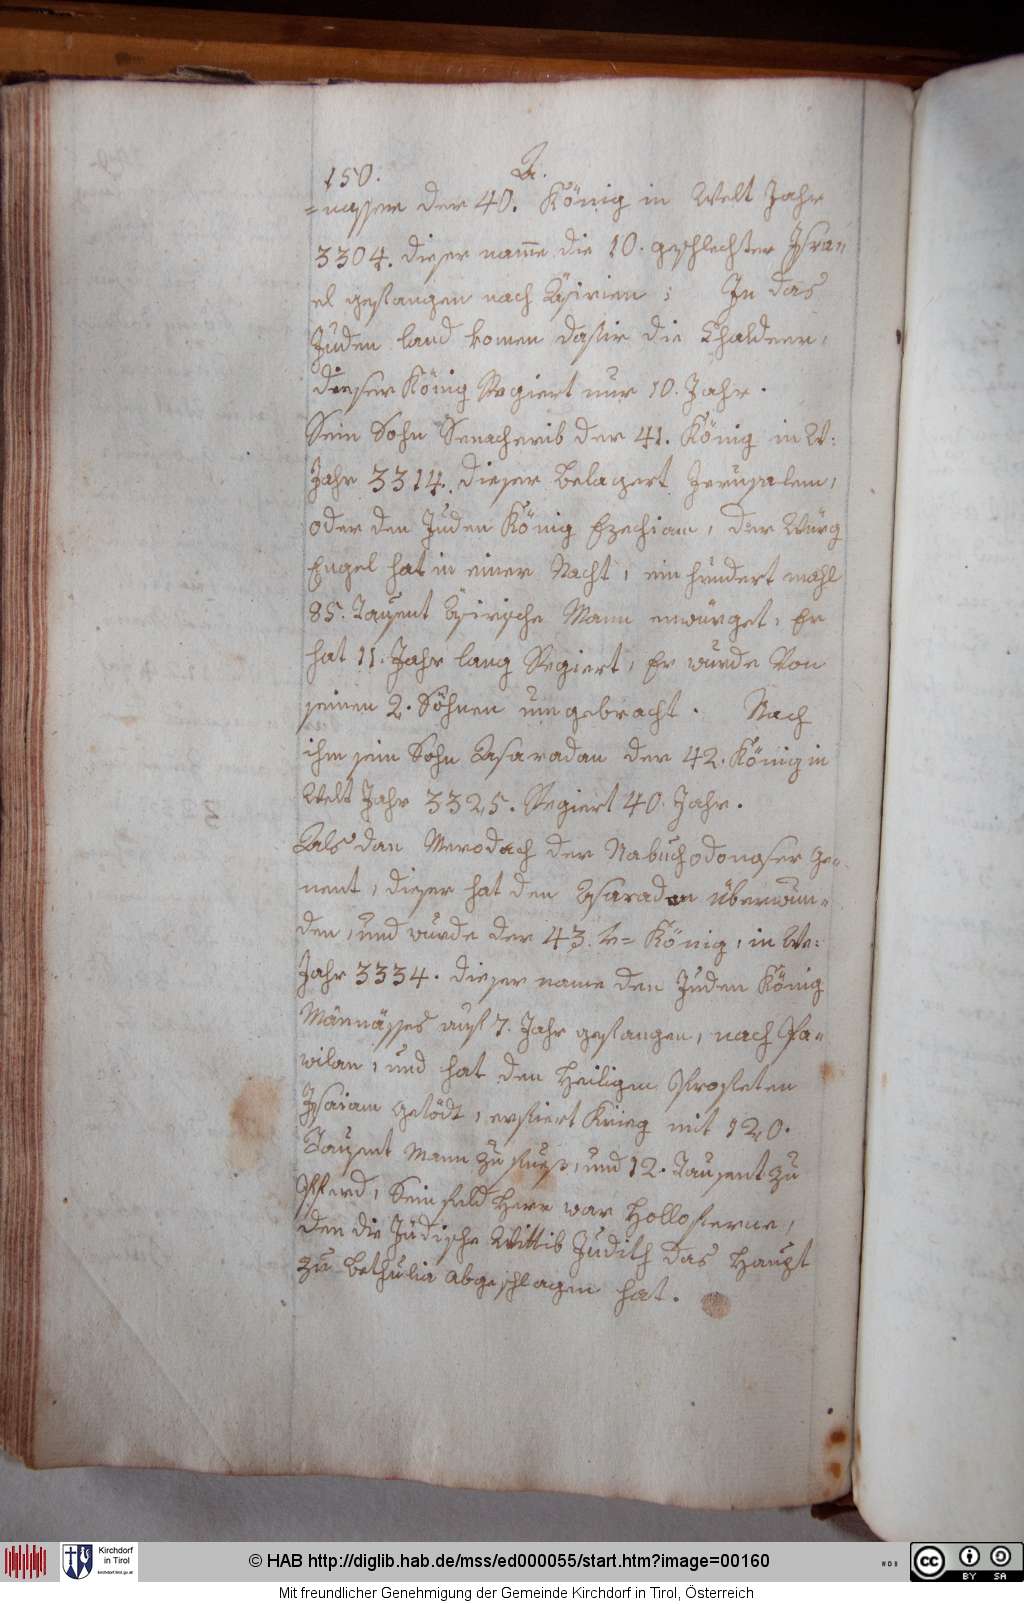 150. A.
=nasser der 40. König in Welt Jahr
3304. dieser name die 10. geschlechter Isra=
el gefangen nach Äsirien ; In das
Juden land komen dafir die Chaldeer,
dieser König Regiert nur 10. Jahr.
Sein Sohn Senacherib der 41. König in W:
Jahr 3314. dieser belagert Jerusalem,
oder den Juden König Ezechiam, der Würg
Engel hat in einer Nacht, ein hundert mahl
85. Tausent Äsirische Mann erwürget, Er
hat 11. Jahr lang Regiert, Er wurde Von
seinen 2. Söhnen umgebracht. Nach
ihm sein Sohn Asaradan der 42. König in
Welt Jahr 3325. Regiert 40. Jahr.
Als dan Merodach der Nabuchodonoser ge=
nent, dieser hat den Asaradan überwun=
den, und wurde der 43. te= König, in We:
Jahr 3334. dieser name den Juden König
Männässes auf 7. Jahr gefangen, nach Pa=
wilan, und hat den heiligen Profeten
Isaiam getödt, erfiert Krieg mit 120.
Tausent Mann zu fues, und 12. Tausent zu
Pferd, Sein feld herr war Holloferne,
den die Jüdische Wittib Judith das haupt
zu bethulia abgeschlagen hat.
Kirchdorf
in Tirol
kirchdorf.tirol.gv.at
© HAB http://diglib.hab.de/mss/ed000055/start.htm?image=00160
WDB
cc BY SA
Mit freundlicher Genehmigung der Gemeinde Kirchdorf in Tirol, Österreich